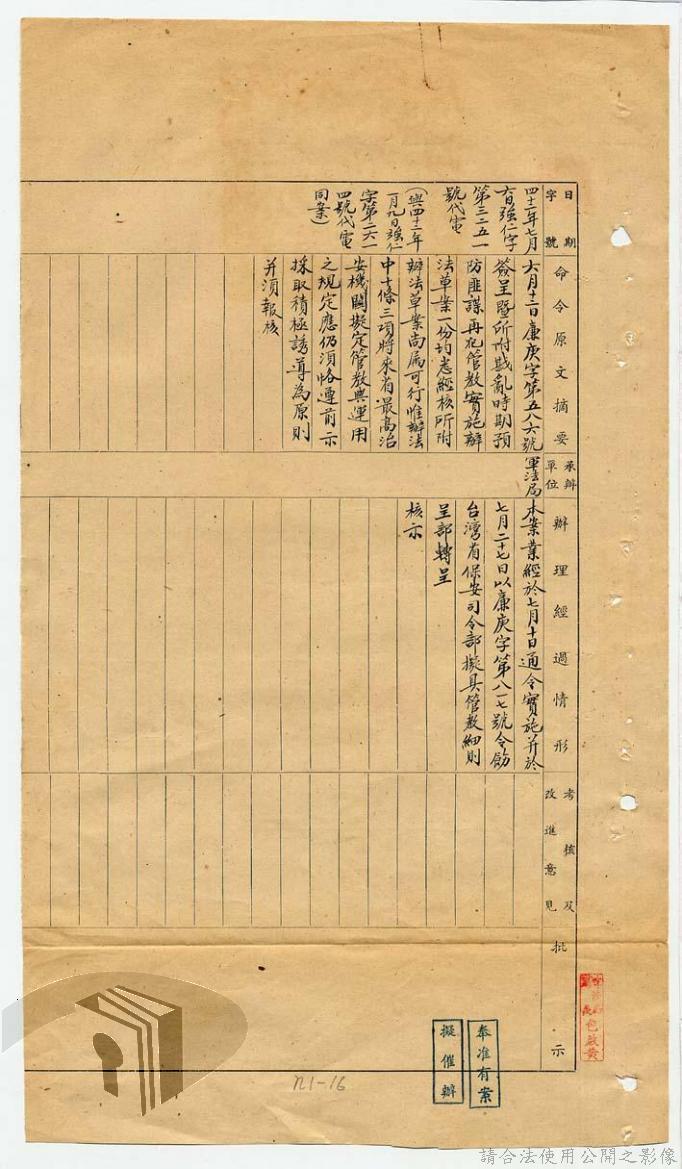 日期
字號
命令原文摘要
承辦
單位
辦理經過情形
考核及
改進意見
批示
四十二年七月
六日強仁字
第三二五一
號代電
(與四十二年
一月九日強仁
字第二六一
四號代電
同案)
六月十一日廉庚字第五八六號
簽呈暨所附戡亂時期預
防匪諜再犯管教實施辦
法草案一份均悉經核所附
辦法草案尚屬可行惟辦法
中十條三項將來省最高治
安機關擬定管教與運用
之規定應仍須恪遵前示
採取積極誘導為原則
并須報核
軍法局
本案業經於七月十日通令實施并於
七月二十七日以廉庚字第八一七號令飭
台灣省保安司令部擬具管教細則
呈部轉呈
核示
奉准有案
擬催辦
п1-16
請合法使用公開之影像